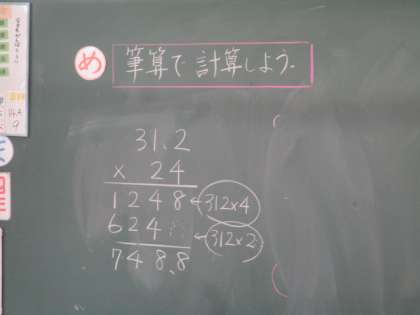 め
筆算で計算しよう。
31.2
× 24
1248 ← 312×4
624 ← 312×2
748.8